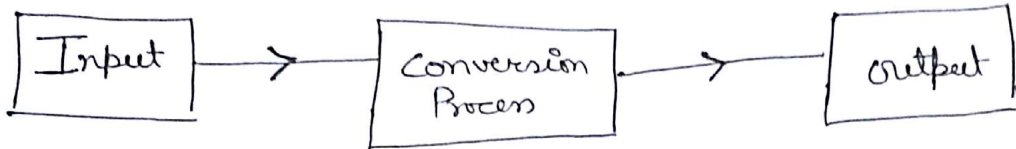 Input
Conversion
Process
output